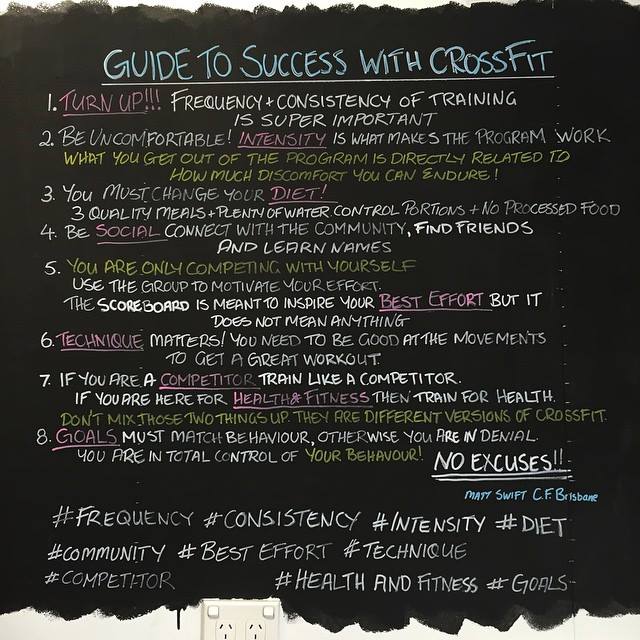 GUIDE TO SUCCESS WITH CROSSFIT
1. TURN UP!!! FREQUENCY + CONSISTENCY OF TRAINING
IS SUPER IMPORTANT
2. BE UNCOMFORTABLE! INTENSITY IS WHAT MAKES THE PROGRAM WORK
WHAT YOU GET OUT OF THE PROGRAM IS DIRECTLY RELATED TO
HOW MUCH DISCOMFORT YOU CAN ENDURE!
3. YOU MUST CHANGE YOUR DIET!
3 QUALITY MEALS + PLENTY OF WATER. CONTROL PORTIONS + NO PROCESSED FOOD
4. BE SOCIAL CONNECT WITH THE COMMUNITY, FIND FRIENDS
AND LEARN NAMES
5. YOU ARE ONLY COMPETING WITH YOURSELF
USE THE GROUP TO MOTIVATE YOUR EFFORT.
THE SCOREBOARD IS MEANT TO INSPIRE YOUR BEST EFFORT BUT IT
DOES NOT MEAN ANYTHING
6. TECHNIQUE MATTERS! YOU NEED TO BE GOOD AT THE MOVEMENTS
TO GET A GREAT WORKOUT.
7. IF YOU ARE A COMPETITOR TRAIN LIKE A COMPETITOR.
IF YOU ARE HERE FOR HEALTH & FITNESS THEN TRAIN FOR HEALTH.
DON'T MIX THOSE TWO THINGS UP. THEY ARE DIFFERENT VERSIONS OF CROSSFIT.
8. GOALS MUST MATCH BEHAVIOUR, OTHERWISE YOU ARE IN DENIAL.
YOU ARE IN TOTAL CONTROL OF YOUR BEHAVIOUR!
NO EXCUSES!!
MATT SWIFT C.F. Brisbane
#FREQUENCY #CONSISTENCY #INTENSITY #DIET
#COMMUNITY #BEST EFFORT #TECHNIQUE
#COMPETITOR #HEALTH AND FITNESS #GOALS